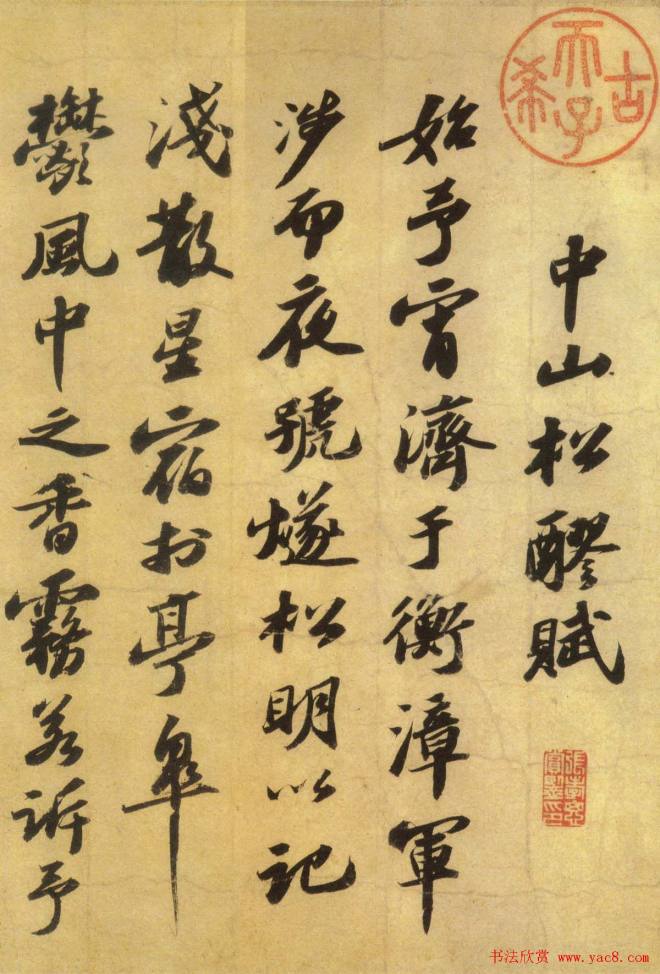 中山松醪賦
始予宵濟于衡漳軍
涉而夜號燧松明以記
淺散星宿於亭皋
鬱風中之香霧若訴予
古希天子
書法欣赏 www.yac8.com